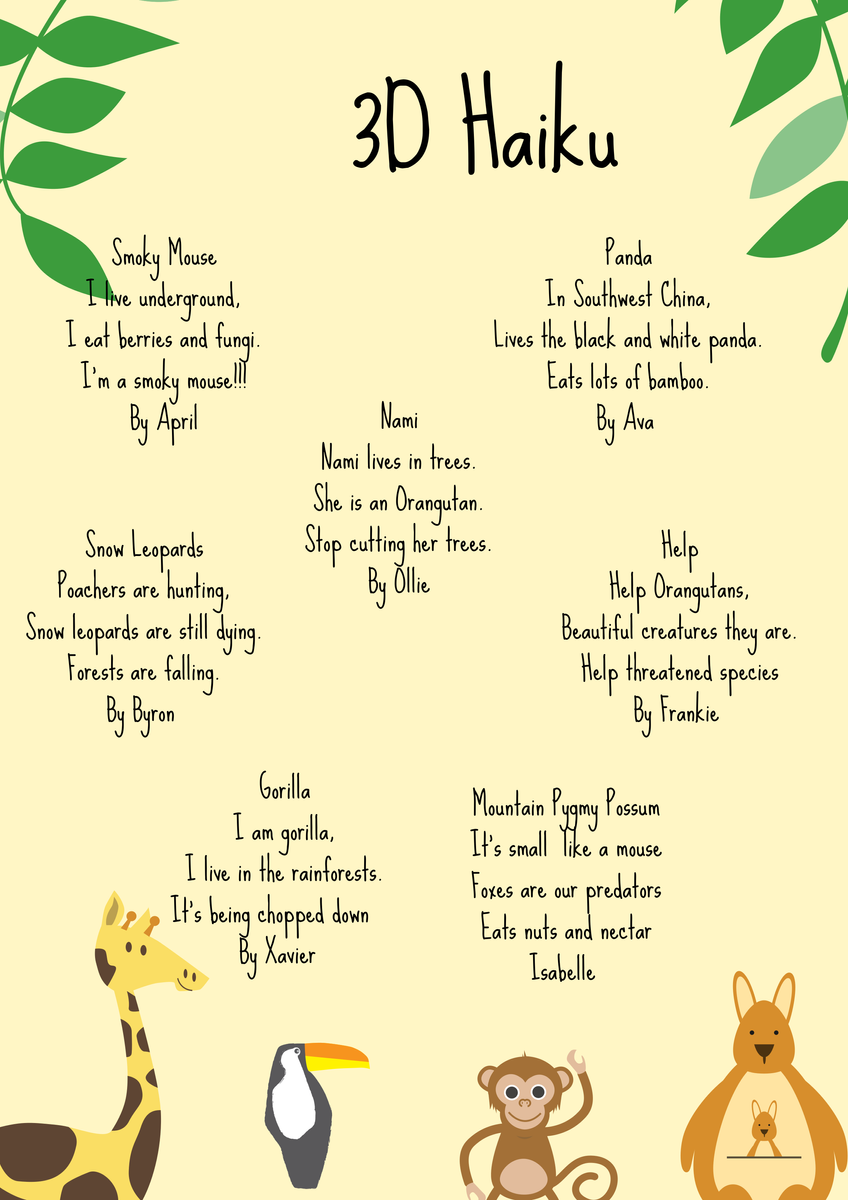 3D Haiku
Smoky Mouse
I live underground,
I eat berries and fungi.
I'm a smoky mouse!!!
By April
Panda
In Southwest China,
Lives the black and white panda.
Eats lots of bamboo.
By Ava
Nami
Nami lives in trees.
She is an Orangutan.
Stop cutting her trees.
By Ollie
Snow Leopards
Poachers are hunting,
Snow leopards are still dying.
Forests are falling.
By Byron
Help
Help Orangutans,
Beautiful creatures they are.
Help threatened species
By Frankie
Gorilla
I am gorilla,
I live in the rainforests.
It's being chopped down
By Xavier
Mountain Pygmy Possum
It's small like a mouse
Foxes are our predators
Eats nuts and nectar
Isabelle